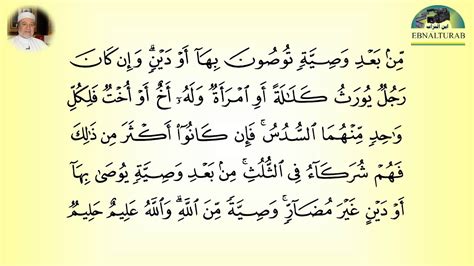 ابن التراب
EBNALTURAB
مِّنۢ بَعْدِ وَصِيَّةٍ تُوصُونَ بِهَآ أَوْ دَيْنٍ ۗ وَإِن كَانَ
رَجُلٌ يُورَثُ كَلَٰلَةً أَوِ ٱمْرَأَةٌ وَلَهُۥٓ أَخٌ أَوْ أُخْتٌ فَلِكُلِّ
وَٰحِدٍ مِّنْهُمَا ٱلسُّدُسُ ۚ فَإِن كَانُوٓا۟ أَكْثَرَ مِن ذَٰلِكَ
فَهُمْ شُرَكَآءُ فِى ٱلثُّلُثِ ۚ مِنۢ بَعْدِ وَصِيَّةٍ يُوصَىٰ بِهَآ
أَوْ دَيْنٍ غَيْرَ مُضَآرٍّ ۚ وَصِيَّةً مِّنَ ٱللَّهِ ۗ وَٱللَّهُ عَلِيمٌ حَلِيمٌ